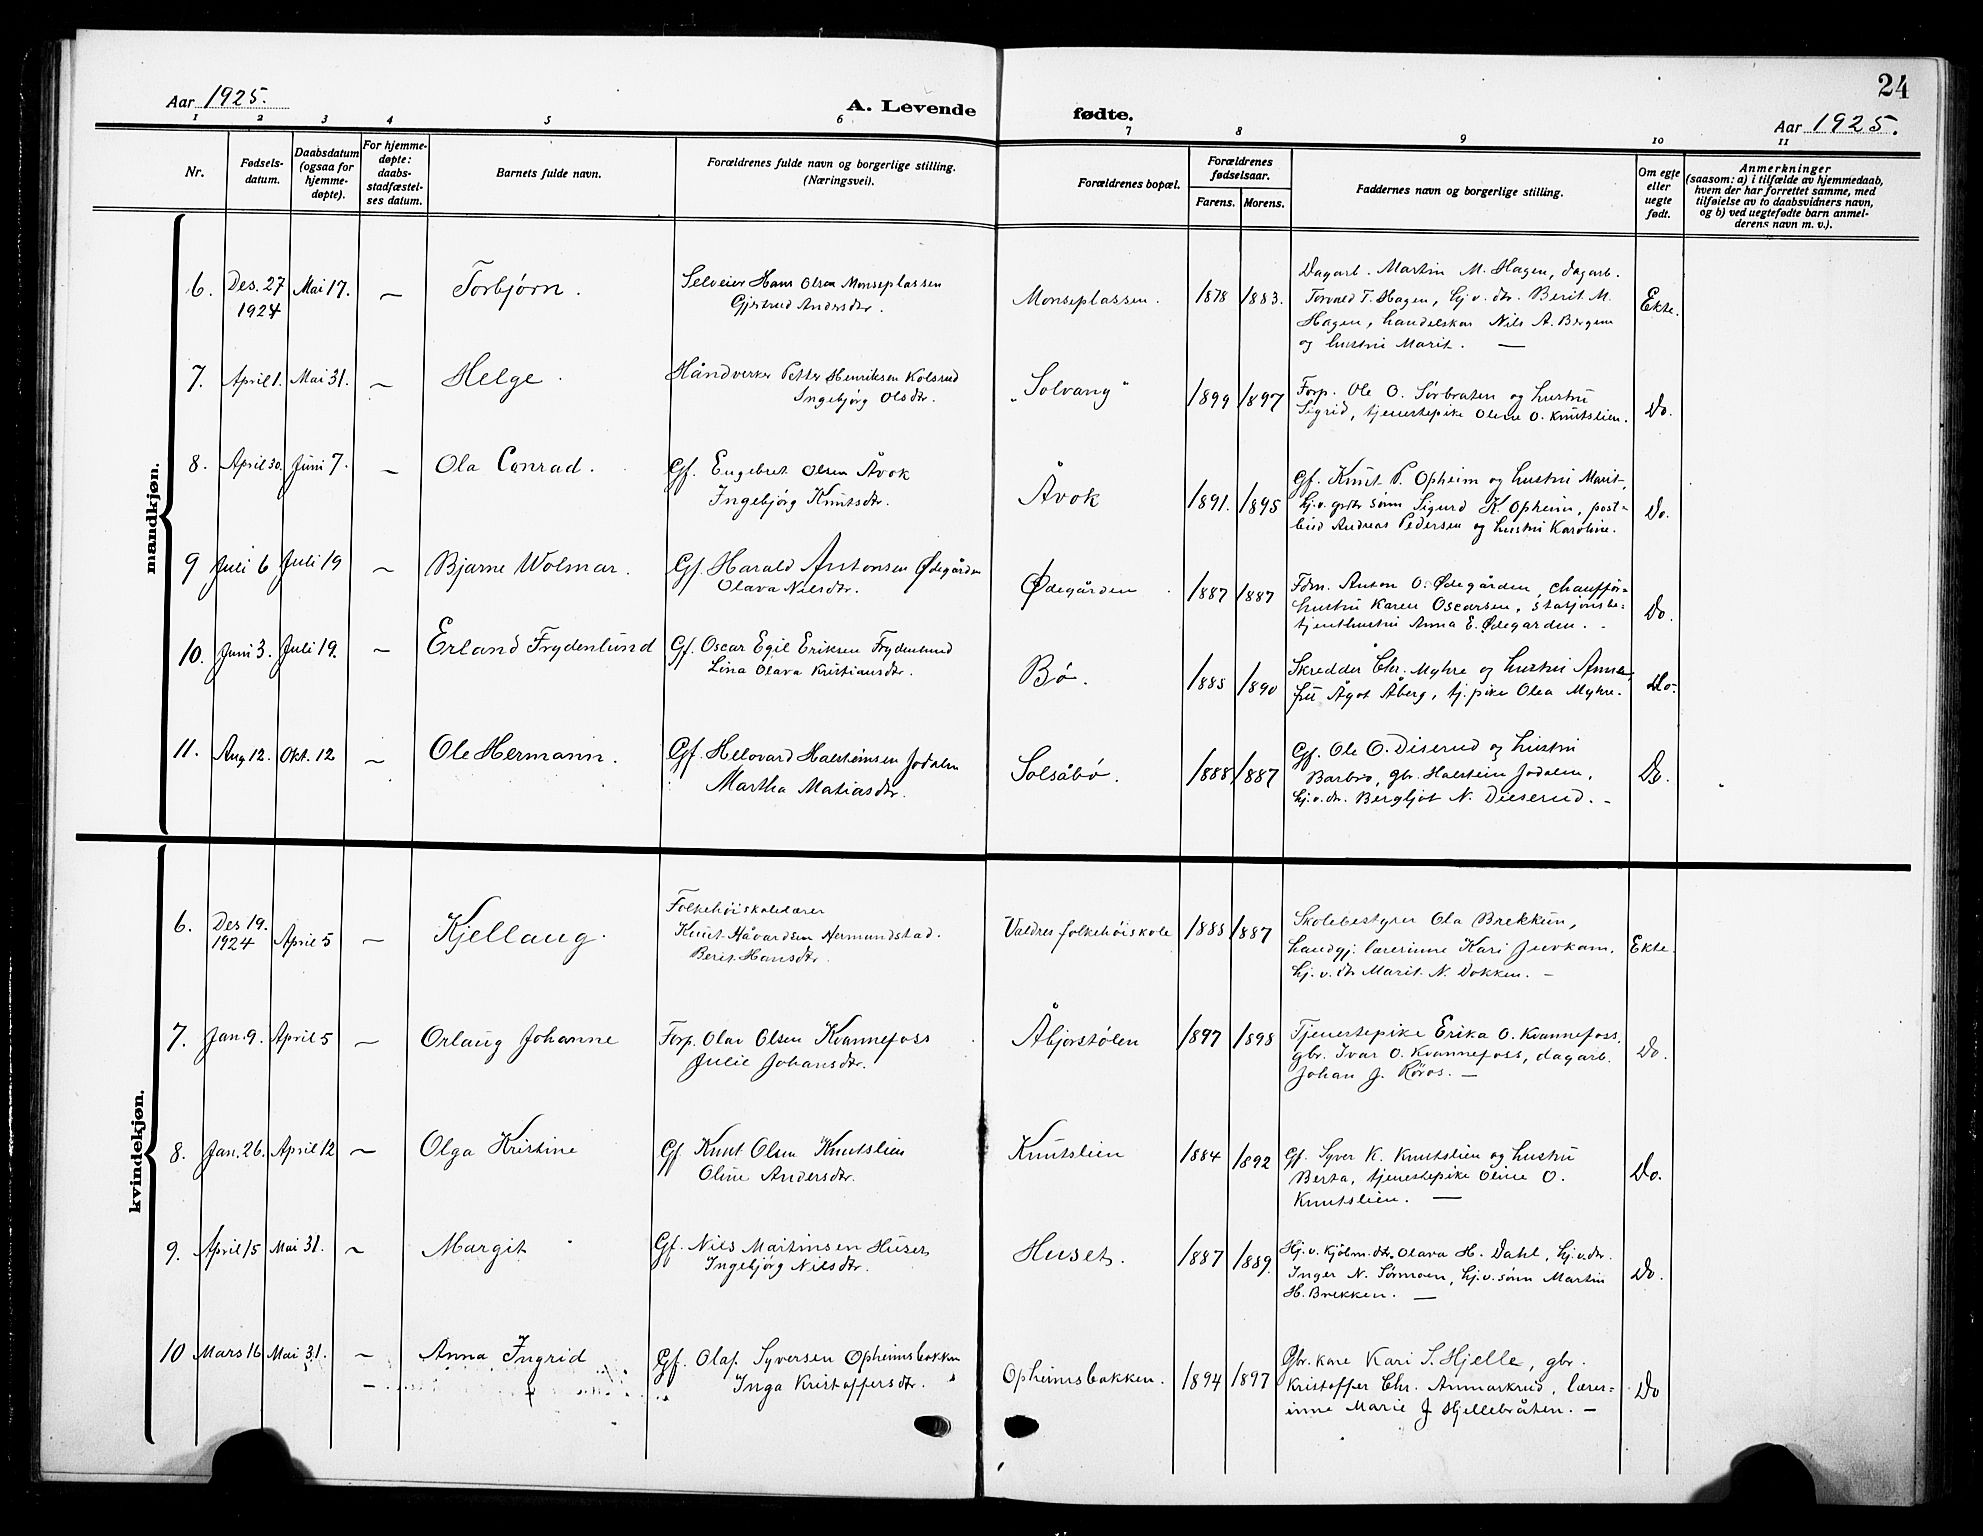 24
Aar 1925.
A. Levende fødte.
Aar 1925.
1 2 3 4 5 6 7 8 9 10 11
Nr.
Fødsels-
datum.
Daabsdatum
(ogsaa for
hjemme-
døpte).
For hjemme-
døpte:
daabs-
stadfæstel-
ses datum.
Barnets fulde navn.
Forældrenes fulde navn og borgerlige stilling.
(Næringsvei).
Forældrenes bopæl.
Forældrenes
fødselsaar.
Farens. Morens.
Faddernes navn og borgerlige stilling.
Om egte
eller
uegte
født.
Anmerkninger
(saasom: a) i tilfælde av hjemmedaab,
hvem der har forrettet samme, med
tilføielse av to daabsvidners navn,
og b) ved uegtefødte barn anmel-
derens navn m. v.).
mandkjøn.
6. Des. 27 1924 Mai 17. — Torbjørn.
Selveier Hans Olsen Monseplassen
Gjertrud Andersdtr.
Monseplassen. 1878 1883.
Dagarb. Martin M. Hagen, dagarb.
Torvald T. Hagen, hj.v. dtr. Berit M.
Hagen, handelskar Nils A. Bergene
og hustru Marit. —
Ekte.
7. April 1. Mai 31. — Helge.
Håndverker Petter Henriksen Kolsrud
Ingebjørg Olsdtr.
„Solvang” 1899 1897
Forp. Ole O. Sørbråten og hustru
Sigrid, tjenestepike Oline O. Knutslien.
Do.
8. April 30. Juni 7. — Ola Conrad.
Gf. Engebret Olsen Åvok
Ingebjørg Knutsdtr.
Åvok 1891. 1895
Gf. Knut P. Opheim og hustru Marit,
hj.v. gbr. sønn Sigurd K. Opheim, post-
bud Andreas Pedersen og hustru Karoline.
Do.
9 Juli 6 Juli 19 — Bjarne Wolmar.
Gf. Harald Antonsen Ødegården
Olava Nilsdtr.
Ødegården 1887 1887
Fdrn. Anton O. Ødegården, chauffør-
hustru Karen Oscarsen, stasjonsbe-
tjenthustru Anna E. Ødegården.
Do.
10. Juni 3. Juli 19. — Erland Frydenlund
Gf. Oscar Egil Eriksen Frydenlund
Lina Olava Kristiansdtr.
Bø. 1885 1890
Skredder Chr. Myhre og hustru Anna,
fru Ågot Åberg, tj.pike Olea Myhre.
Do.
11. Aug 12. Okt. 12 — Ole Hermann.
Gf. Helovard Halsteinsen Jodalen
Martha Matiasdtr.
Solsåbø. 1888 1887
Gf. Ole O. Diserud og hustru
Barbro, gbr. Halstein Jodalen,
hj.v. dtr. Bergljot N. Dieserud. —
Do.
kvindekjøn.
6. Des 19. 1924 April 5 — Kjellaug.
Folkehøiskolelærer
Knut Håvardsen Nermundstad.
Berit Hansdtr.
Valdres folkehøiskole 1885 1887
Skolebestyrer Ola Brekkun,
handgj. lærerinne Kari Juvkam.
hj.v. dtr Marit N. Dokken. —
Ekte.
7. Jan. 9. April 5 — Orlaug Johanne
Forp. Olav Olsen Kvannefoss
Julie Johansdtr.
Åbjorstølen 1897 1898
Tjenestepike Erika O. Kvannefoss,
gbr. Ivar O. Kvannefoss, dagarb.
Johan J. Røros. —
Do.
8. Jan. 26. April 12 — Olga Kristine
Gf. Knut Olsen Knutslien
Oline Andersdtr.
Knutslien 1884 1892
Gf. Syver K. Knutslien og hustru
Berta, tjenestepike Oline O.
Knutslien. —
Do.
9. April 15 Mai 31. — Margit
Gf. Nils Martinsen Huset
Ingebjørg Nilsdtr.
Huset. 1887 1889.
Hj.v. kjølm.dtr. Olava H. Dahl, hj.v.dtr.
Inger N. Sørmoen, hj.v.sønn Martin
H. Brekken. —
Do.
10 Mars 16 Mai 31. — Anna Ingrid
Gf. Olaf Syversen Opheimsbakken
Inga Kristoffersdtr.
Opheimsbakken. 1894 1897
Gbr. kone Kari S. Hjelle, gbr.
Kristoffer Chr. Anmarkrud, lærer-
inne Marie J Hjellebråten. —
Do